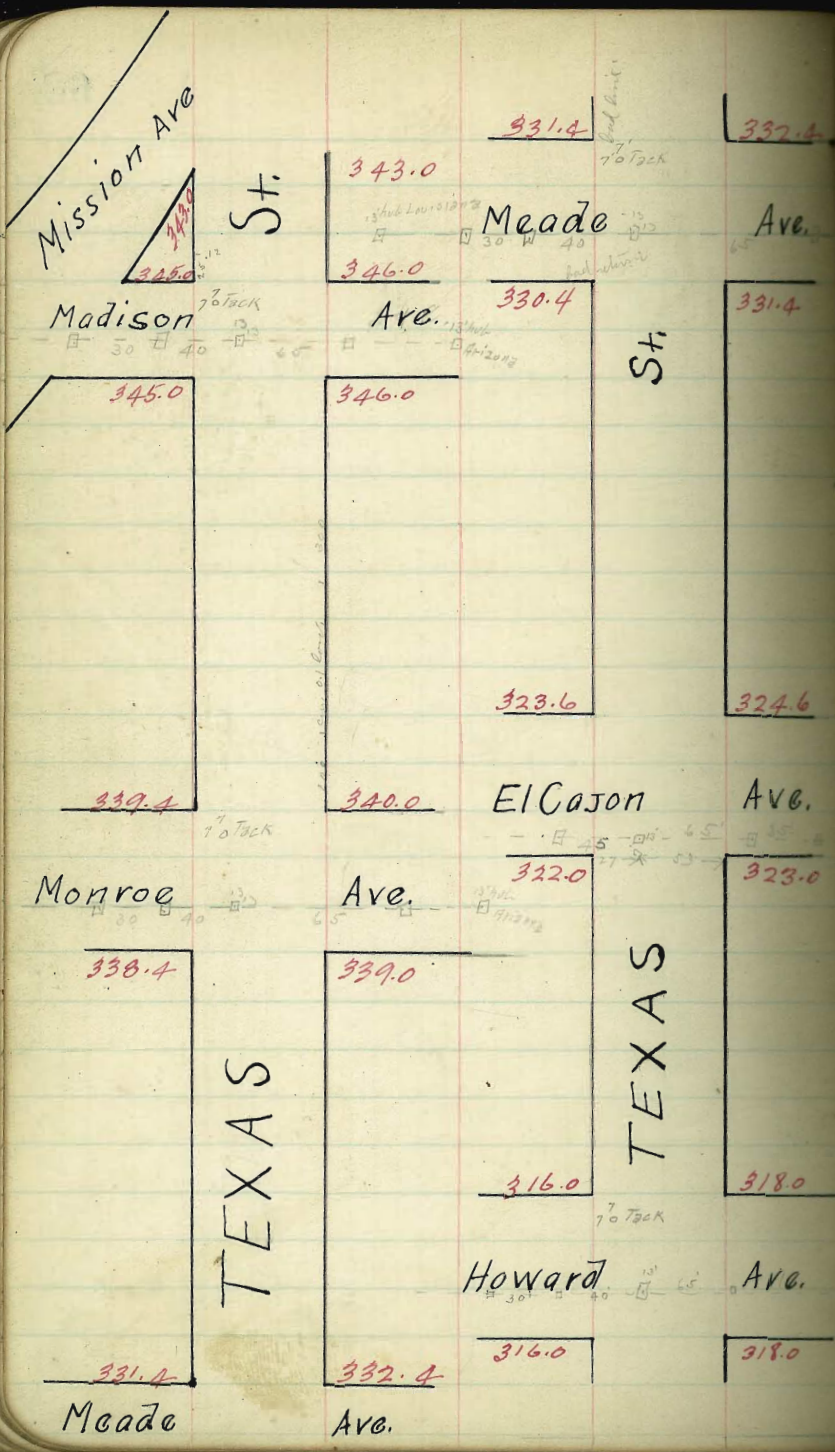 Mission Ave
343.0
345.0
St.
343.0
346.0
7' 0 Tack
Madison Ave.
30 40 65
13' hub
Arizona
345.0 346.0
339.4 340.0
7' 0 Tack
Monroe Ave.
30 40 13' 65
13' hub
Arizona
338.4 339.0
TEXAS
331.4 332.4
Meade Ave.
331.4 332.4
7' 0 Tack
13' hub Louisiana
Meade Ave.
30 40 13' 65
330.4 331.4
St.
323.6 324.6
El Cajon Ave.
45 65'
27 53
322.0 323.0
TEXAS
316.0 318.0
7' 0 Tack
Howard Ave.
30' 40' 13' 65'
316.0 318.0